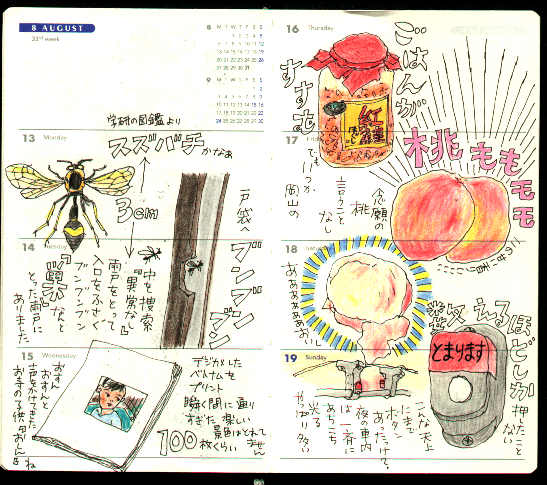 8 AUGUST
33rd week
8 M T W T F S S
1 2 3 4 5
6 7 8 9 10 11 12
13 14 15 16 17 18 19
20 21 22 23 24 25 26
27 28 29 30 31
9 M T W T F S S
1 2
3 4 5 6 7 8 9
10 11 12 13 14 15 16
17 18 19 20 21 22 23
24 25 26 27 28 29 30
学研の図鑑より
13 Monday
スズバチ
かなぁ
3cm
戸袋へ
ブンブンブン
14 Tuesday
中を捜索
『異常なし』
雨戸をとって
入口をふさぐ
ブンブンブン
などと
とった雨戸に
ありました
15 Wednesday
デジカメした
ベトナムを
プリント
瞬く間に通り
すぎた楽しい
景色はとれて
ません
100枚くらい
おすっ
声をかけてきた
お寺の子供
ね
16 Thursday
ごはんが
すすむ
紅鮭
17
でも
いつか
岡山の
桃
言うことなし
念願の
桃ももモモ
18
ああああああおいしい
19 Sunday
とまります
ほどしか
押したこと
ない
こんな天上
にまで
ボタン
あったけ?
夜の車内
は一斉に
あちこち
光る
やっぱり多い